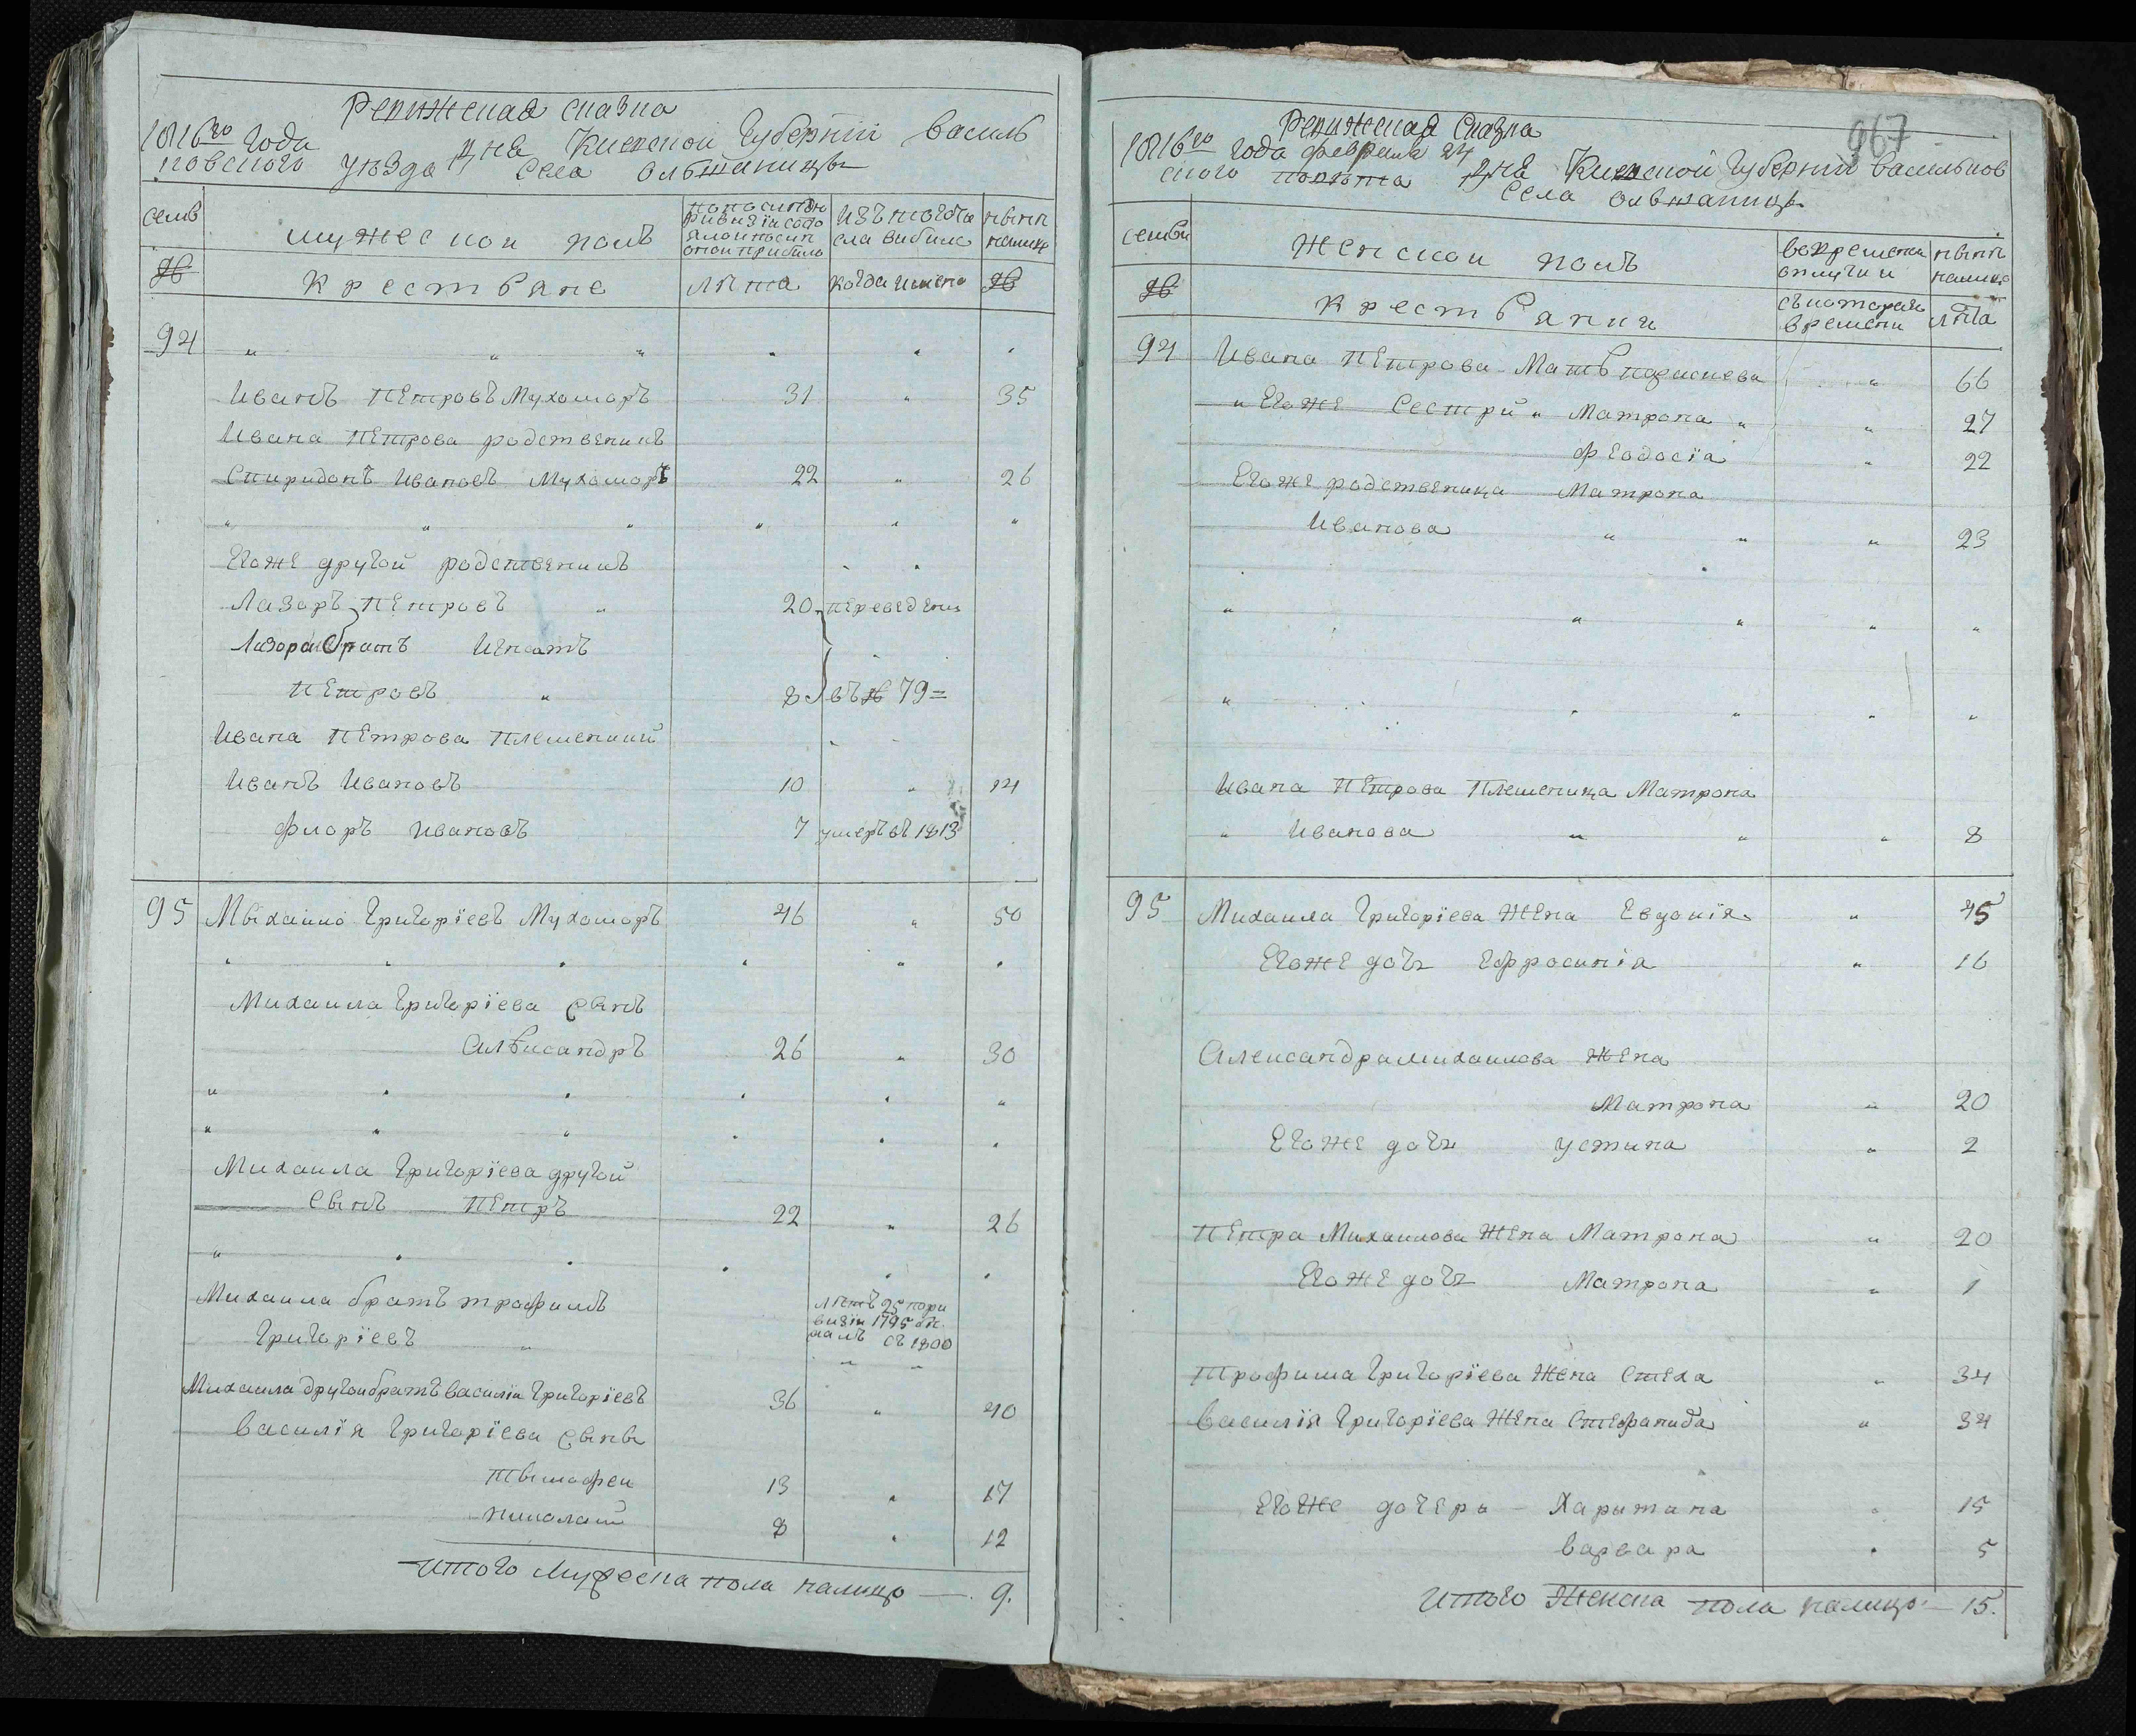 Ревижская сказка
1816го года дня Киевской Губерніи василь
ковского уѣзда Села Ольшаницы
семьи
мужеской полъ
по последн
ревизіи состо
яло и после
оной прибыло
изъ того чи
сла выбыло
ныне
налицо
№
крестьяне
лѣта
когда имено
№
94
Иванъ Петровъ Мухоморъ 31 35
Ивана Петрова родственикъ
Спиридонъ Ивановъ Мухоморъ 22 26
Егоже другой родственикъ
Лазоръ Петровъ 20 переведены
Лазора братъ Игнатъ
Петровъ 8 въ № 79=
Ивана Петрова племеники
Иванъ Ивановъ 10 14
Флоръ Ивановъ 7 умеръ въ 1813
95 Михаило Григоріевъ Мухоморъ 46 50
Михаила Григоріева сынъ
Алѣксандръ 26 30
Михаила Григоріева другой
Сынъ Петръ 22 26
Михаила братъ трофимъ
Григоріевъ
лѣтъ 25 пори
визіи 1795
съ 1800
Михаила другои братъ василіи Григоріевъ 36 40
Василія Григоріева сыны
Тымофеи 13 17
николаий 8 12
Итого Мужеска пола налицо — 9.
967
Ревижская Сказка
1816го Года февраля 24 дня Киевской Губерніи васильков
ского повѣта Села ольшаницы
семьи
Женской полъ
во временной
отлучки
ныне
налицо
№
крестьянки
съ котораго
времени
лѣта
94 Ивана Петрова Мать параскева 66
Егоже Сестри Матрона 27
Феодосія 22
Егоже родственица Матрона
Иванова 23
Ивана Петрова Племеница Матрона
Иванова 8
95 Михаила Григоріева Жена Евдокія 45
Егоже дочь Ефросинія 16
Александра михаилова жена
Матрона 20
Егоже дочь устина 2
Петра Михаилова Жена Матрона 20
Егоже дочь Матрона 1
Трофима Григоріева Жена Стеха 34
Василія Григоріева Жена Стефанида 34
Егоже дочери Харитана 15
варвара 5
Итого Женска пола налицо — 15.